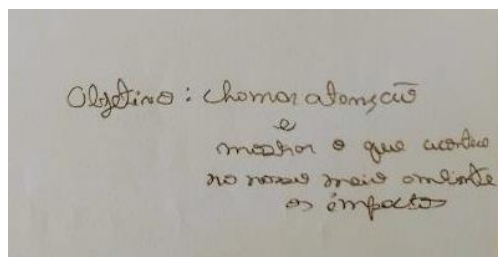 Objetivo: chamar atenção
e
mostrar o que acontece
no nosso meio ambiente
os impactos